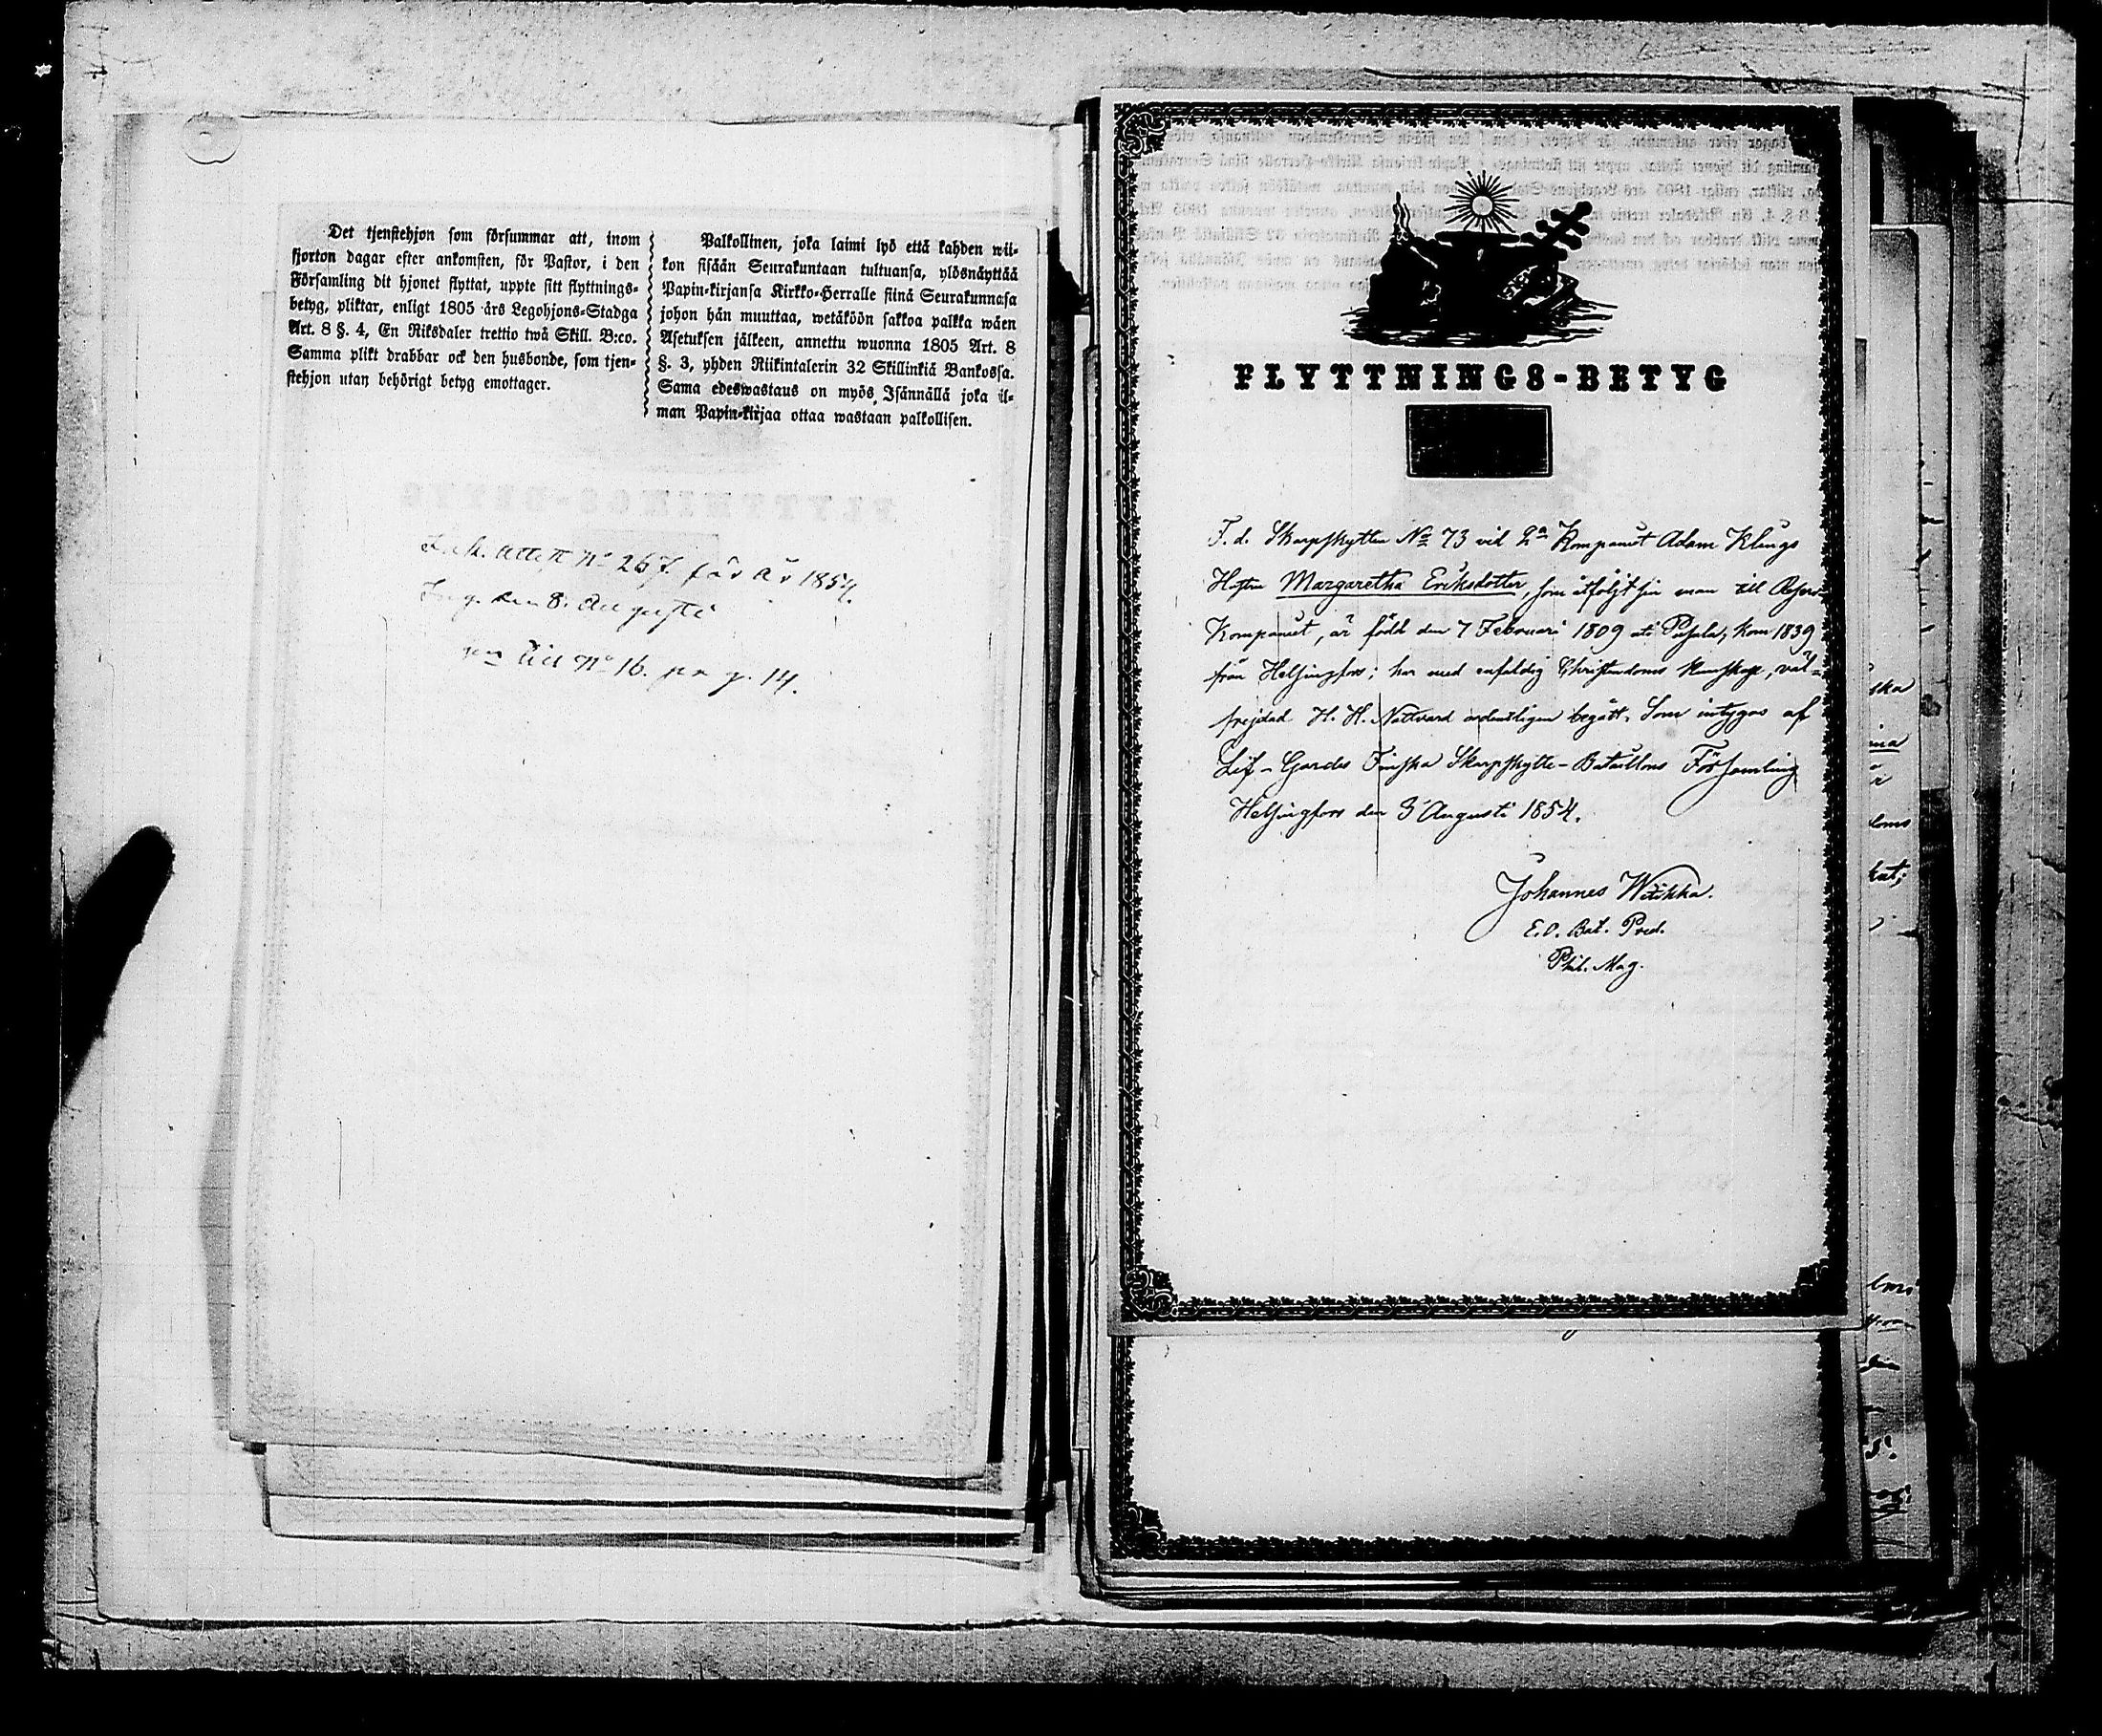 Det tjenstehjon som försummar att, inom
fjorton dagar efter ankomsten, för Pastor, i den
Församling dit hjonet flyttat, uppte sitt flyttnings-
betyg, pliktar, enligt 1805 års Legohjons-Stadga
Art. 8 §. 4, En Riksdaler trettio twå Skill. B:co.
Samma plikt drabbar ock den husbonde, som tjen-
stehjon utan behörigt betyg emottager.
Palkollinen, joka laimi lyö että kahden wii-
kon sisään Seurakuntaan tultuansa, ylösnäyttää
Papin-kirjansa Kirkko-Herralle siinä Seurakunnasa
johon hän muuttaa, wetäköön sakkoa palkka wäen
Asetuksen jälkeen, annettu wuonna 1805 Art. 8
§. 3, yhden Riikintalerin 32 Skillinkiä Bankossa.
Sama edeswastaus on myös Isännällä joka il-
man Papin-kirjaa ottaa wastaan palkollisen.
attest No 267. för år 1854.
Ing. den 8. Augusti
No 16. p. 14.
FLYTTNINGS-BETYG
F. d. Skarpskytten No 73 vid 2a Kompaniet Adam Klings
Hustru Margaretha Eriksdotter, som åtföljt sin man till Reserv-
Kompaniet, är född den 7 Februari 1809 uti Pusula, kom 1839
från Helsingfors; har med enfaldig Christendoms kunskap, väl-
frejdad H. H. Nattvard ordentligen begått. Som intygas af
Lif-Gardes Finska Skarpskytte-Bataillons Församling
Helsingfors den 3 Augusti 1854.
Johannes
E.O. Bat. Pred.
Phil. Mag.